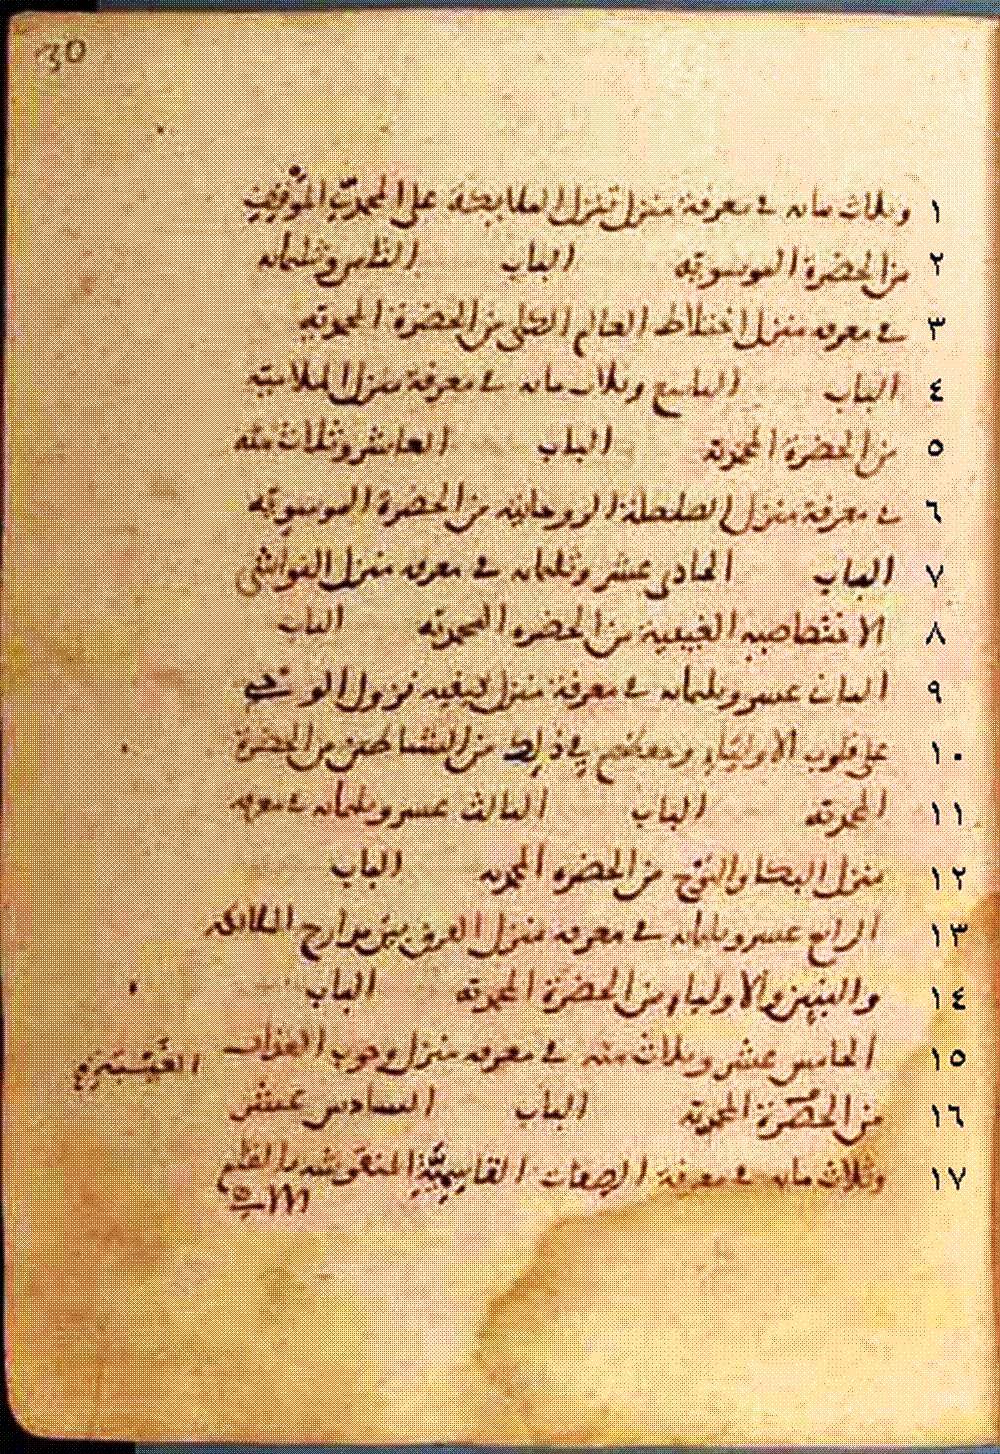 30
١ وثلاث مائه في معرفة منزل تنزل الملايكة على المحمديّ الموقف
٢ من الحضرة الموسويه الباب الثامن وثلثمائه
٣ في معرفه منزل اختلاط العالم الكلي من الحضرة المحمديه
٤ الباب التاسع وثلاث مائه في معرفة منزل الملاميّه
٥ من الحضرة المحمديه الباب العاشر وثلاث مئه
٦ في معرفة منزل الصلصلة الروحانيه من الحضرة الموسويه
٧ الباب الحادي عشر وثلثمائه في معرفه منزل النواشي
٨ الاختصاصيه الغيبية من الحضره المحمديه الباب
٩ الثاني عشر وثلثمائه في معرفة منزل كيفيه نزول الوحي
١٠ على قلوب الاولياء وحفظهم في ذلك من الشياطين من الحضرة
١١ المحمديه الباب الثالث عشر وثلثمائه في معرفه
١٢ منزل البكا والنوح من الحضره المحمديه الباب
١٣ الرابع عشر وثلثمائه في معرفه منزل الفرق بين مدارج الملائكه
١٤ والنبيين والاولياء من الحضرة المحمديه الباب
١٥ الخامس عشر وثلاث مئه في معرفه منزل وجوب العذاب
١٦ من الحضرة المحمديه الباب السادس عشر
١٧ وثلاث مائه في معرفة الصفات القايميّة المنقوشه بالقلم